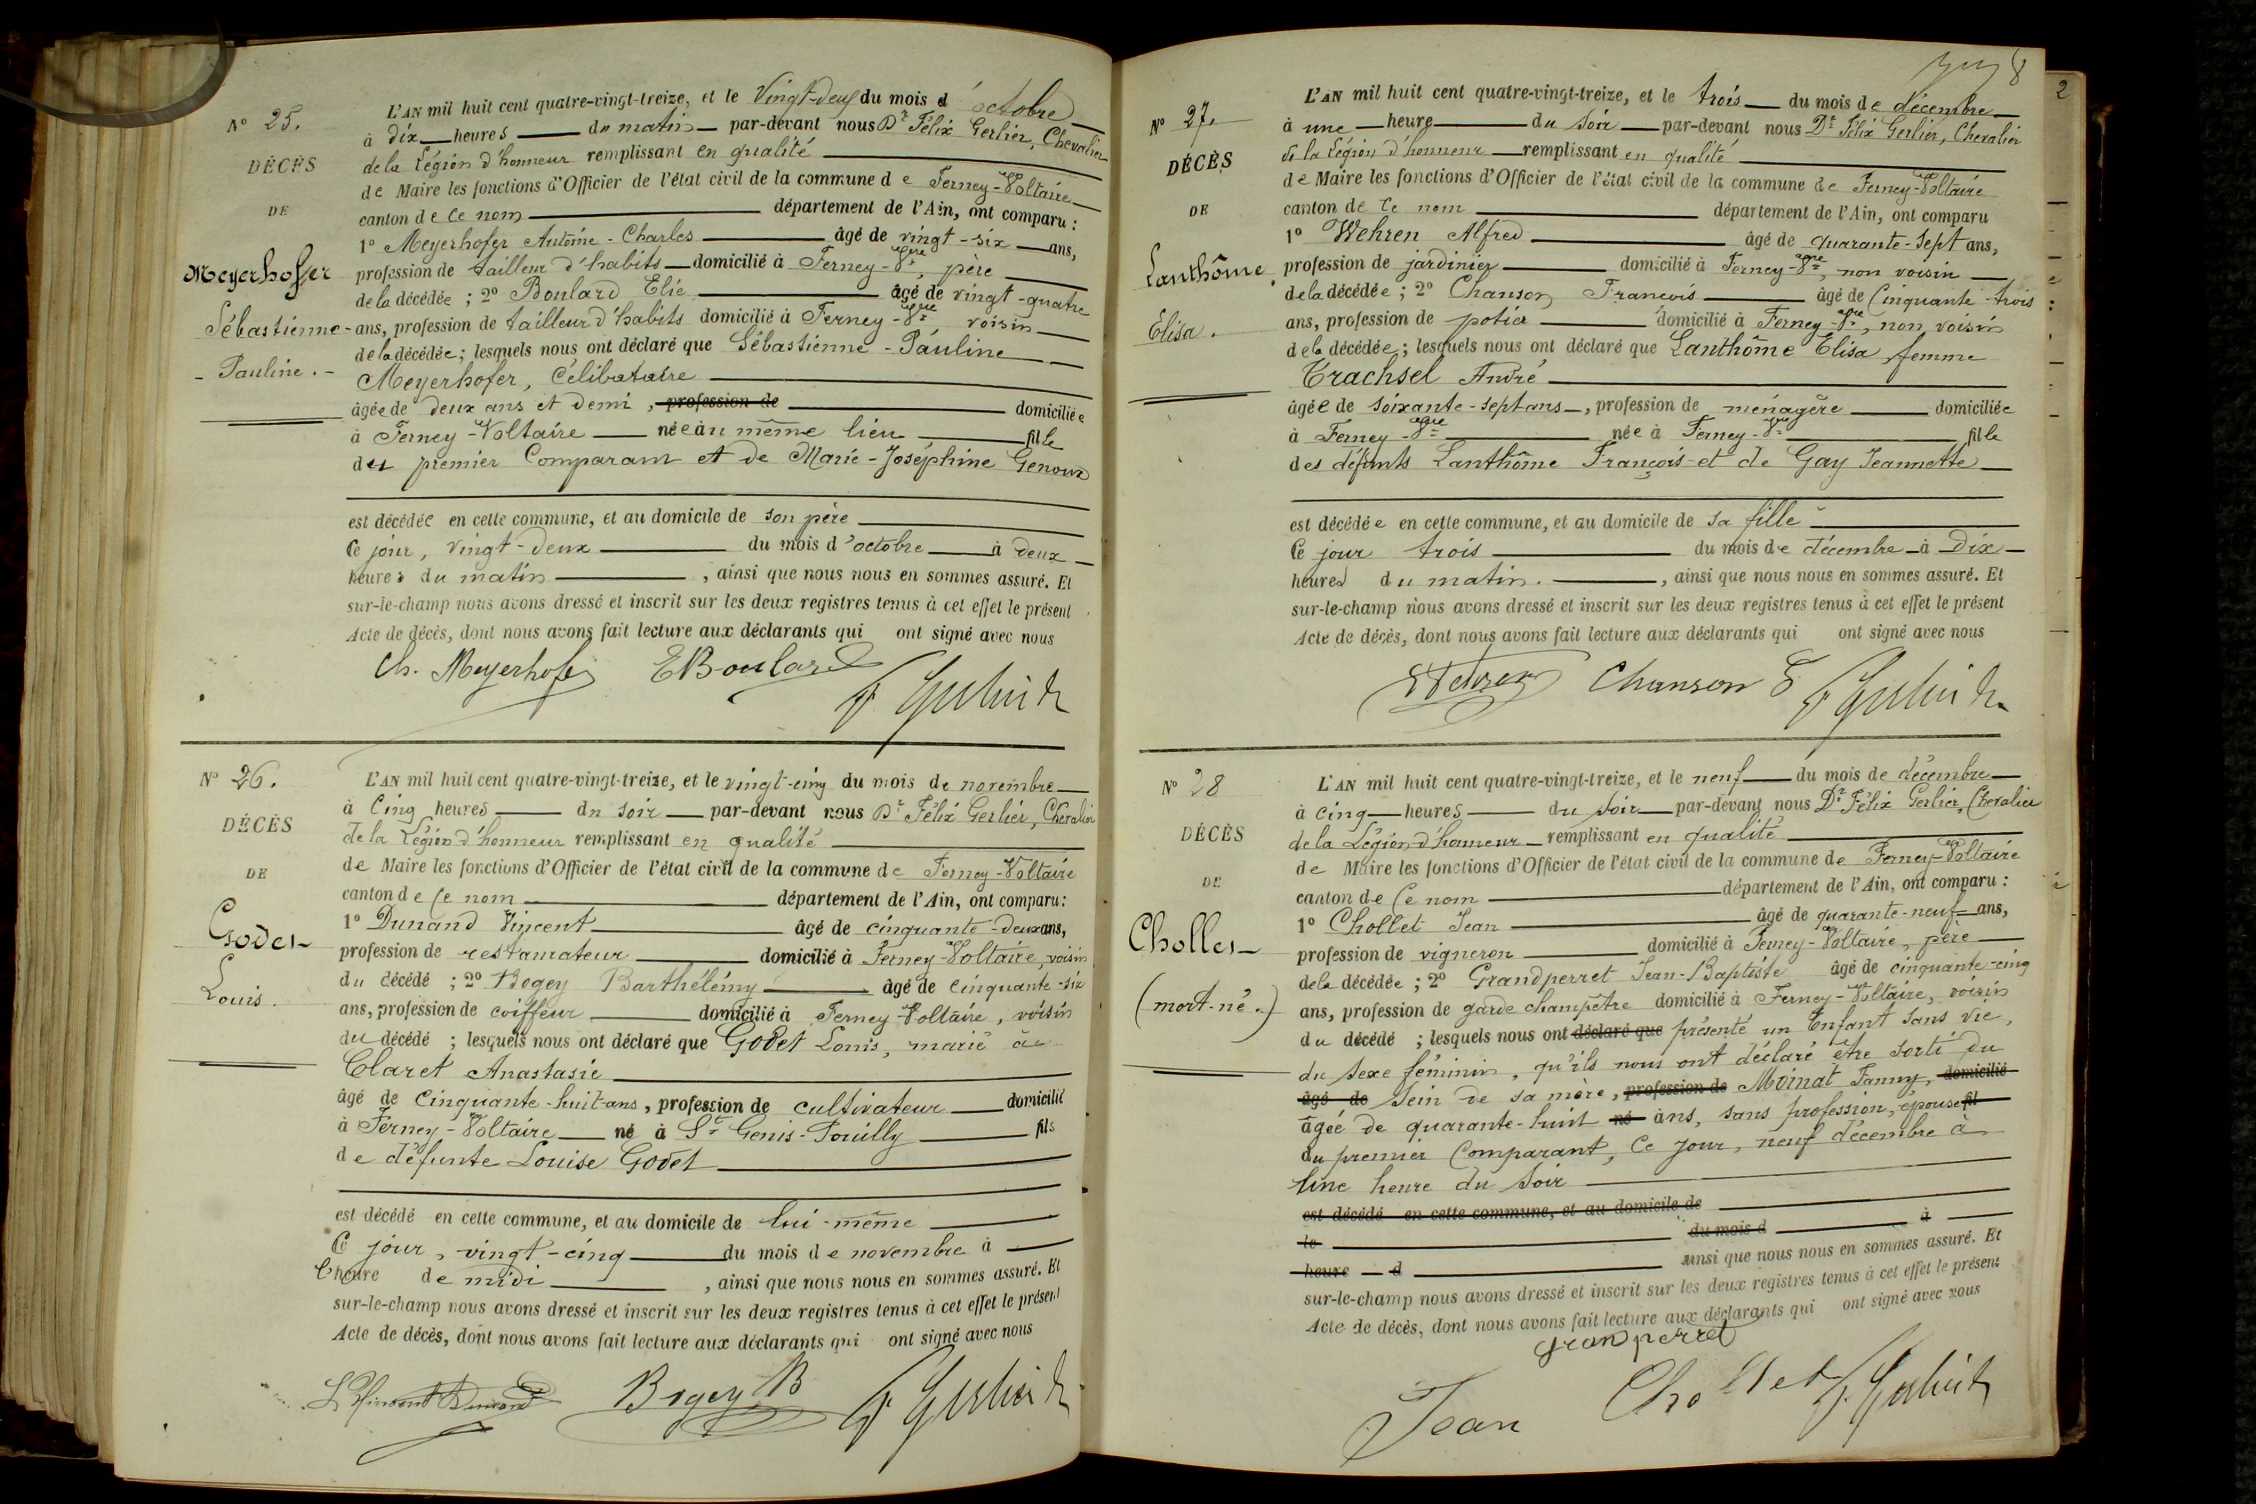 N° 25.
DÉCÈS
DE
Meyerhofer
Sébastienne-
- Pauline. -
L'AN mil huit cent quatre-vingt-treize, et le Vingt-deux du mois d'octobre
à dix heures du matin par-devant nous Dr Félix Gerlier, Chevalier
de la Légion d'honneur remplissant en qualité
de Maire les fonctions d'Officier de l'état civil de la commune de Ferney-Voltaire
canton de ce nom département de l'Ain, ont comparu :
1° Meyerhofer Antoine-Charles âgé de vingt-six ans,
profession de tailleur d'habits domicilié à Ferney-Vre, père
de la décédée ; 2° Boulard Elie âgé de vingt-quatre
ans, profession de tailleur d'habits domicilié à Ferney-Vre, voisin
de la décédée ; lesquels nous ont déclaré que Sébastienne-Pauline
Meyerhofer, Célibataire
âgée de deux ans et demi, profession de domiciliée
à Ferney-Voltaire née au même lieu fille
du premier Comparant et de Marie-Joséphine Genoux
est décédée en cette commune, et au domicile de son père
Ce jour, vingt-deux du mois d'octobre à deux
heures du matin, ainsi que nous nous en sommes assuré. Et
sur-le-champ nous avons dressé et inscrit sur les deux registres tenus à cet effet le présent
Acte de décès, dont nous avons fait lecture aux déclarants qui ont signé avec nous
Ch. Meyerhofer EBoulard
N° 26.
DÉCÈS
DE
Godet
Louis.
L'AN mil huit cent quatre-vingt-treize, et le vingt-cinq du mois de novembre
à Cinq heures du soir par-devant nous Dr Félix Gerlier, Chevalier
de la Légion d'honneur remplissant en qualité
de Maire les fonctions d'Officier de l'état civil de la commune de Ferney-Voltaire
canton de Ce nom département de l'Ain, ont comparu :
1° Dunand Vincent âgé de cinquante-deux ans,
profession de restaurateur domicilié à Ferney-Voltaire, voisin
du décédé ; 2° Bogey Barthélémy âgé de cinquante-six
ans, profession de coiffeur domicilié à Ferney-Voltaire, voisin
du décédé ; lesquels nous ont déclaré que Godet Louis, marié à
Claret Anastasie
âgé de Cinquante-huit ans, profession de cultivateur domicilié
à Ferney-Voltaire né à St Genis-Pouilly fils
de défunte Louise Godet
est décédé en cette commune, et au domicile de lui-même
Ce jour, vingt-cinq du mois de novembre à
l'heure de midi, ainsi que nous nous en sommes assuré. Et
sur-le-champ nous avons dressé et inscrit sur les deux registres tenus à cet effet le présent
Acte de décès, dont nous avons fait lecture aux déclarants qui ont signé avec nous
Bogey B
8
N° 27.
DÉCÈS
DE
Lanthôme
Elisa.
L'AN mil huit cent quatre-vingt-treize, et le trois du mois de décembre
à une heure du soir par-devant nous Dr Félix Gerlier, Chevalier
de la Légion d'honneur remplissant en qualité
de Maire les fonctions d'Officier de l'état civil de la commune de Ferney-Voltaire
canton de Ce nom département de l'Ain, ont comparu
1° Wehren Alfred âgé de quarante-sept ans,
profession de jardinier domicilié à Ferney-Vre, non voisin
de la décédée ; 2° Chanson François âgé de Cinquante-trois
ans, profession de potier domicilié à Ferney-Vre, non voisin
de la décédée ; lesquels nous ont déclaré que Lanthôme Elisa femme
Trachsel André
âgée de soixante-sept ans, profession de ménagère domiciliée
à Ferney-Vre née à Ferney-Vre fille
des défunts Lanthôme François et de Gay Jeannette
est décédée en cette commune, et au domicile de sa fille
Ce jour trois du mois de décembre à Dix
heures du matin, ainsi que nous nous en sommes assuré. Et
sur-le-champ nous avons dressé et inscrit sur les deux registres tenus à cet effet le présent
Acte de décès, dont nous avons fait lecture aux déclarants qui ont signé avec nous
Wehren Chanson F
N° 28
DÉCÈS
DE
Chollet
(mort-né.)
L'AN mil huit cent quatre-vingt-treize, et le neuf du mois de décembre
à cinq heures du soir par-devant nous Dr Félix Gerlier, Chevalier
de la Légion d'honneur remplissant en qualité
de Maire les fonctions d'Officier de l'état civil de la commune de Ferney-Voltaire
canton de Ce nom département de l'Ain, ont comparu :
1° Chollet Jean âgé de quarante-neuf ans,
profession de vigneron domicilié à Ferney-Voltaire, père
de la décédée ; 2° Grandperret Jean-Baptiste âgé de cinquante-cinq
ans, profession de garde champêtre domicilié à Ferney-Voltaire, voisin
du décédé ; lesquels nous ont déclaré que présenté un Enfant sans vie,
du sexe féminin, qu'ils nous ont déclaré être sorti du
âgé de sein de sa mère, profession de Moinat Fanny, domicilié
âgée de quarante-huit né ans, sans profession, épouse fil
du premier Comparant, Ce jour, neuf décembre à
Une heure du soir
est décédé en cette commune, et au domicile de
le du mois d à
heure d ainsi que nous nous en sommes assuré. Et
sur-le-champ nous avons dressé et inscrit sur les deux registres tenus à cet effet le présent
Acte de décès, dont nous avons fait lecture aux déclarants qui ont signé avec nous
granperret
Jean Chollet
2